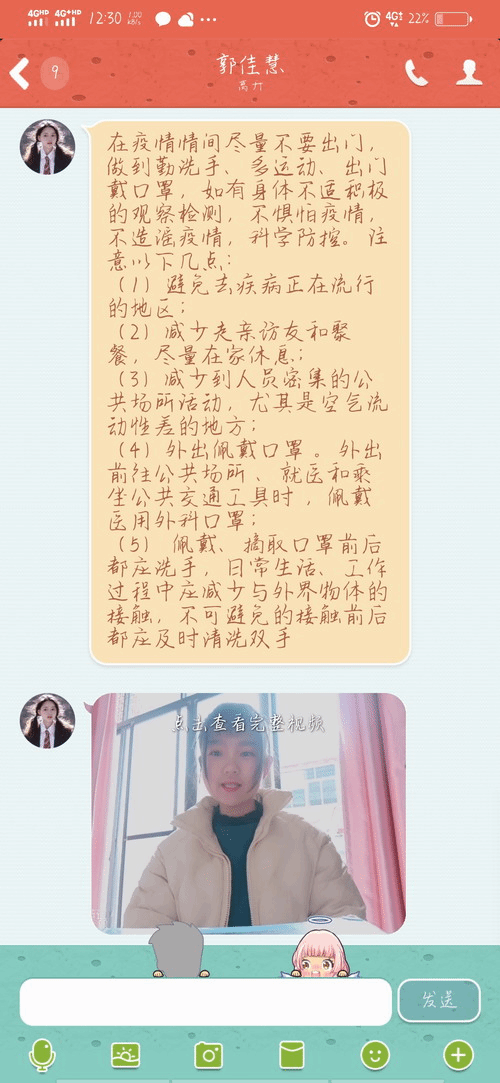 4GHD 4G+HD 12:30 1.00 KB/s ... 4G 22%
9 郭佳慧
高升
在疫情情间尽量不要出门，
做到勤洗手、多运动、出门
戴口罩，如有身体不适积极
的观察检测，不惧怕疫情，
不造谣疫情，科学防控。注
意以下几点：
（1）避免去疾病正在流行
的地区；
（2）减少走亲访友和聚
餐，尽量在家休息；
（3）减少到人员密集的公
共场所活动，尤其是空气流
动性差的地方；
（4）外出佩戴口罩。外出
前往公共场所、就医和乘
坐公共交通工具时，佩戴
医用外科口罩；
（5）佩戴、摘取口罩前后
都应洗手，日常生活、工作
过程中应减少与外界物体的
接触，不可避免的接触前后
都应及时清洗双手
点击查看完整视频
发送